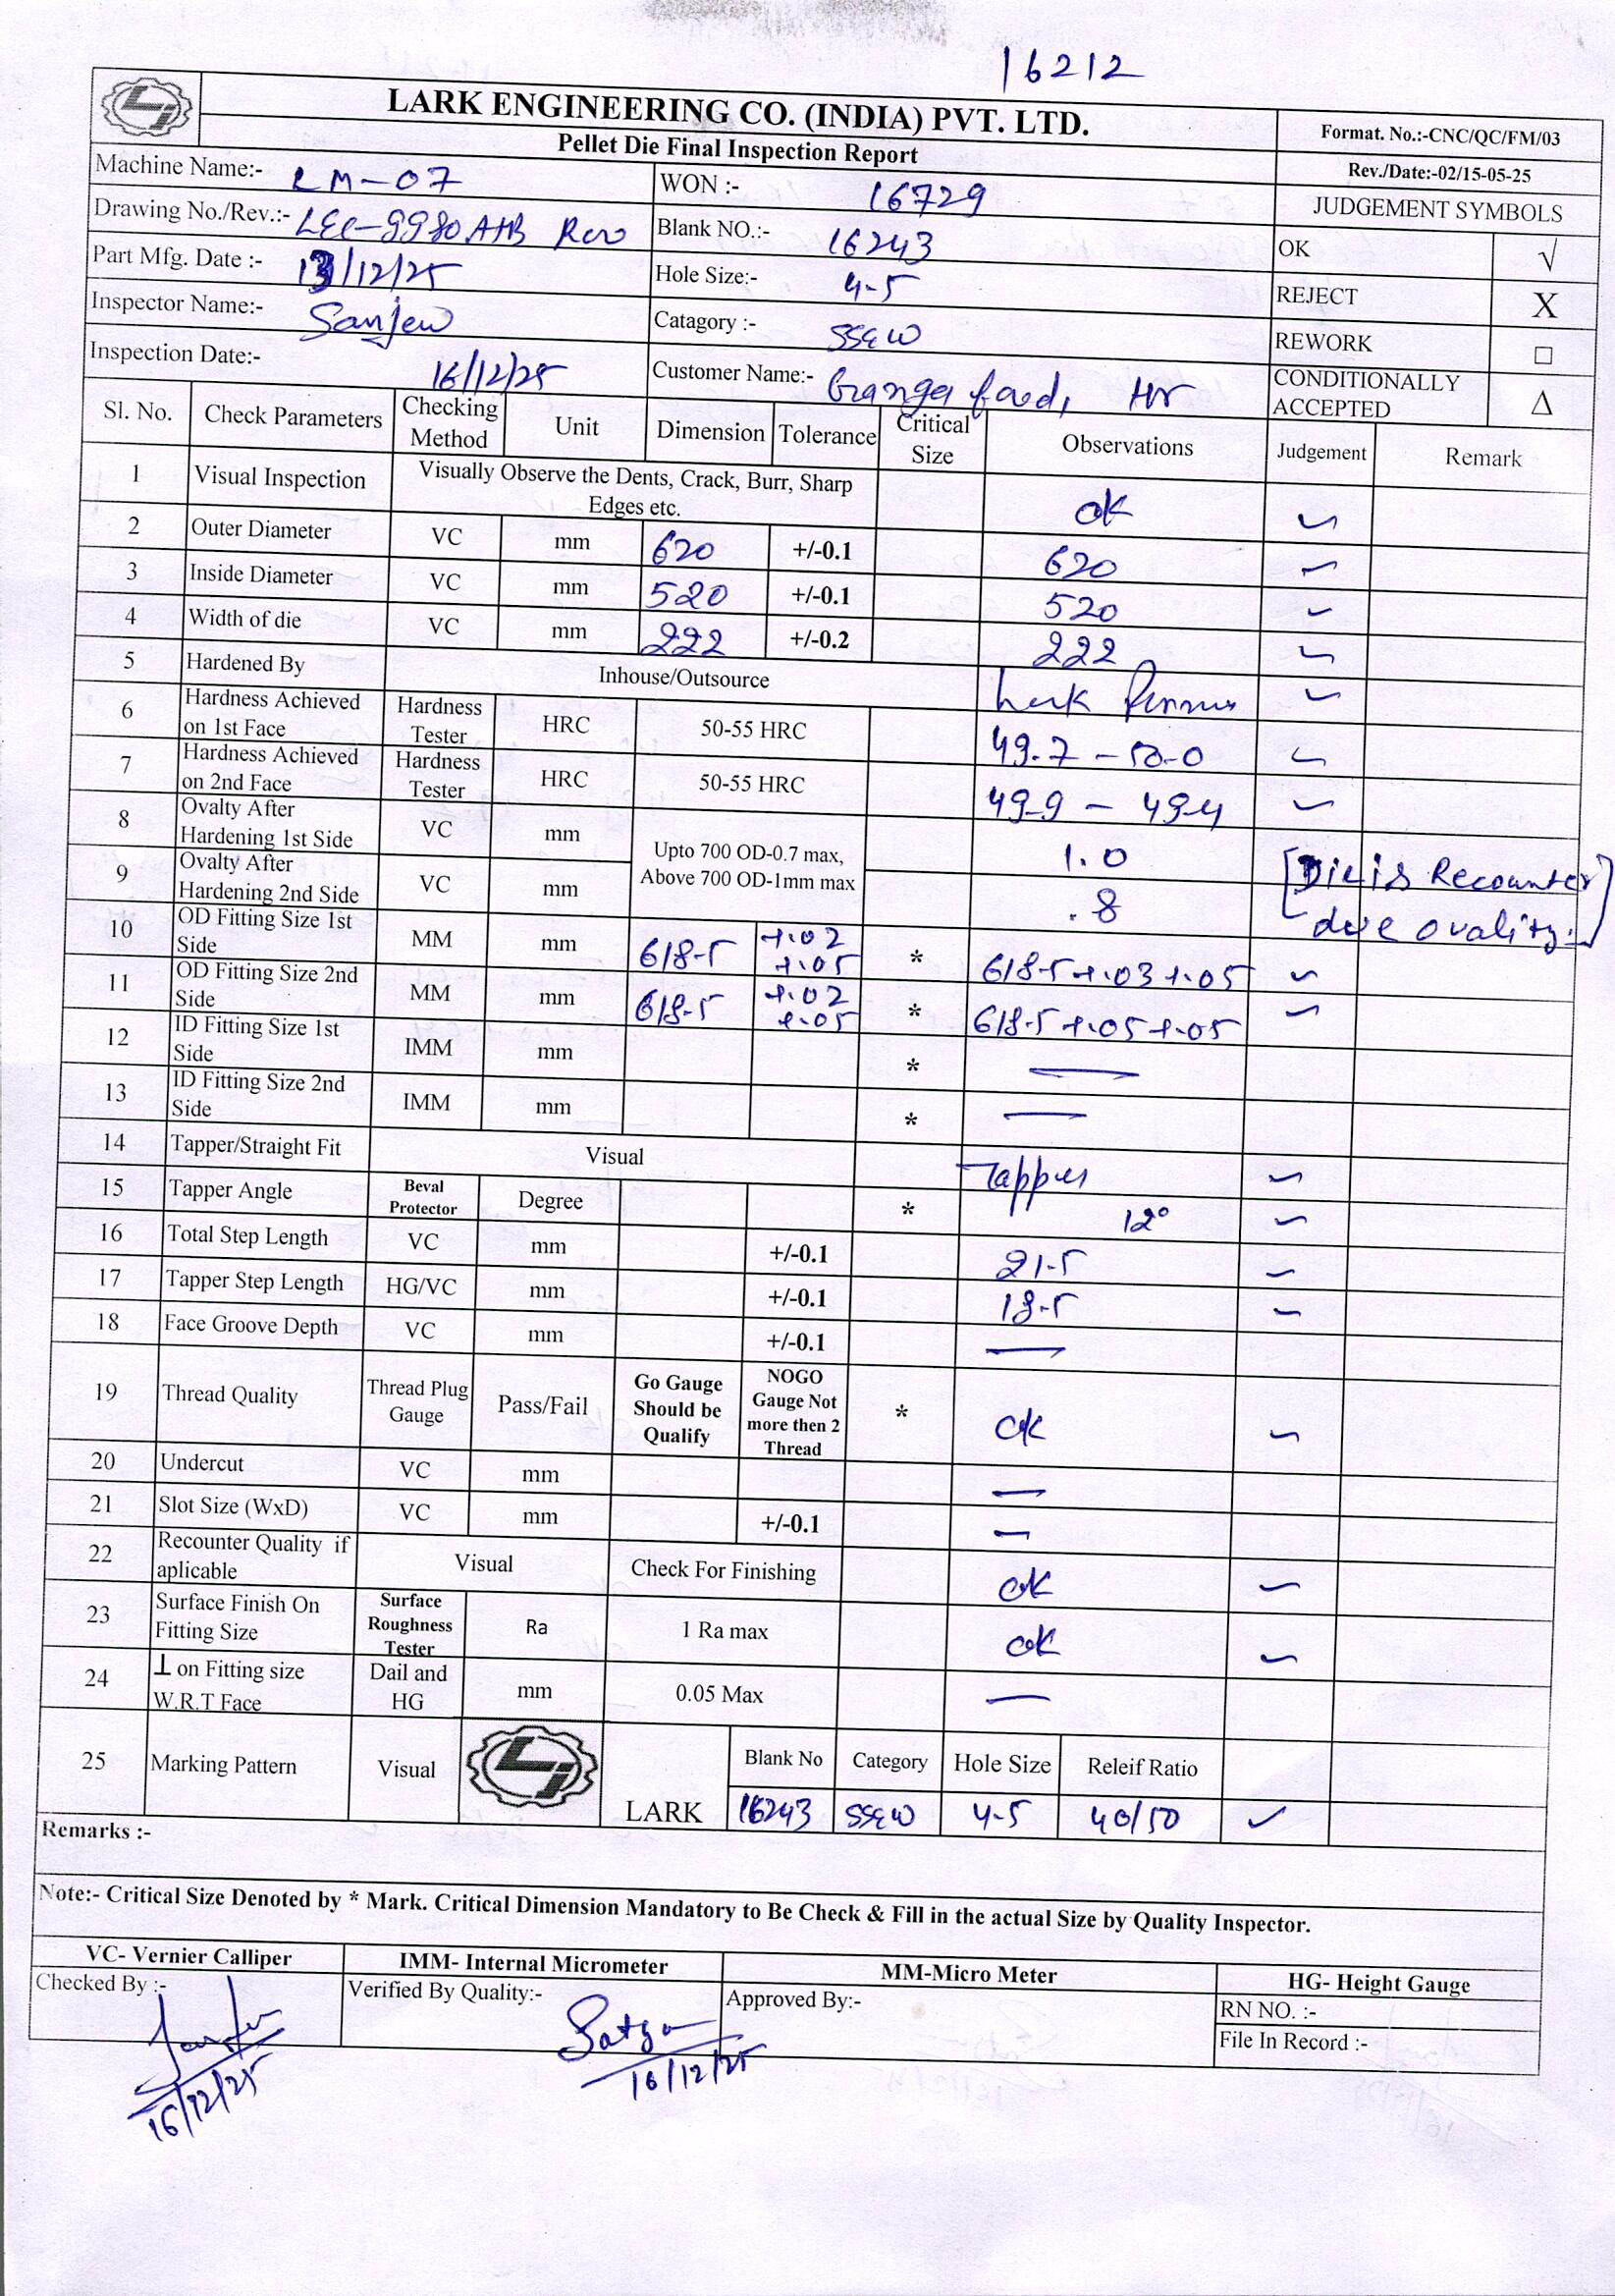 16212
LARK ENGINEERING CO. (INDIA) PVT. LTD.
Pellet Die Final Inspection Report
Format. No.:-CNC/QC/FM/03
Rev./Date:-02/15-05-25
Machine Name:- RM-07 WON :- 16729 JUDGEMENT SYMBOLS
Drawing No./Rev.:- LEC-9980 A+B Rev Blank NO.:- 16243 OK √
Part Mfg. Date :- 13/12/25 Hole Size:- 4.5 REJECT X
Inspector Name:- Sanjew Catagory :- SSEW REWORK □
Inspection Date:- 16/12/25 Customer Name:- Ganga food, Hr CONDITIONALLY ACCEPTED Δ
Sl. No. Check Parameters Checking Method Unit Dimension Tolerance Critical Size Observations Judgement Remark
1 Visual Inspection Visually Observe the Dents, Crack, Burr, Sharp Edges etc. ok ✓
2 Outer Diameter VC mm 620 +/-0.1 620 ✓
3 Inside Diameter VC mm 520 +/-0.1 520 ✓
4 Width of die VC mm 222 +/-0.2 222 ✓
5 Hardened By Inhouse/Outsource Lark ✓
6 Hardness Achieved on 1st Face Hardness Tester HRC 50-55 HRC 49.7 - 50.0 ✓
7 Hardness Achieved on 2nd Face Hardness Tester HRC 50-55 HRC 49.9 - 49.4 ✓
8 Ovalty After Hardening 1st Side VC mm Upto 700 OD-0.7 max, Above 700 OD-1mm max 1.0 [Die is Recounter
9 Ovalty After Hardening 2nd Side VC mm .8 due ovality.]
10 OD Fitting Size 1st Side MM mm 618.5 +.02 +.05 * 618.5 +.03 +.05 ✓
11 OD Fitting Size 2nd Side MM mm 618.5 +.02 +.05 * 618.5 +.05 +.05 ✓
12 ID Fitting Size 1st Side IMM mm * —
13 ID Fitting Size 2nd Side IMM mm * —
14 Tapper/Straight Fit Visual Tapper ✓
15 Tapper Angle Beval Protector Degree * 12° ✓
16 Total Step Length VC mm +/-0.1 21.5 ✓
17 Tapper Step Length HG/VC mm +/-0.1 18.5 ✓
18 Face Groove Depth VC mm +/-0.1 —
19 Thread Quality Thread Plug Gauge Pass/Fail Go Gauge Should be Qualify NOGO Gauge Not more then 2 Thread * ok ✓
20 Undercut VC mm —
21 Slot Size (WxD) VC mm +/-0.1 —
22 Recounter Quality if aplicable Visual Check For Finishing ok ✓
23 Surface Finish On Fitting Size Surface Roughness Tester Ra 1 Ra max ok ✓
24 ⊥ on Fitting size W.R.T Face Dail and HG mm 0.05 Max —
25 Marking Pattern Visual LARK Blank No Category Hole Size Releif Ratio
16243 SSEW 4.5 40/50 ✓
Remarks :-
Note:- Critical Size Denoted by * Mark. Critical Dimension Mandatory to Be Check & Fill in the actual Size by Quality Inspector.
VC- Vernier Calliper IMM- Internal Micrometer MM-Micro Meter HG- Height Gauge
Checked By :- Verified By Quality:- Approved By:- RN NO. :-
File In Record :-
16/12/25 16/12/25